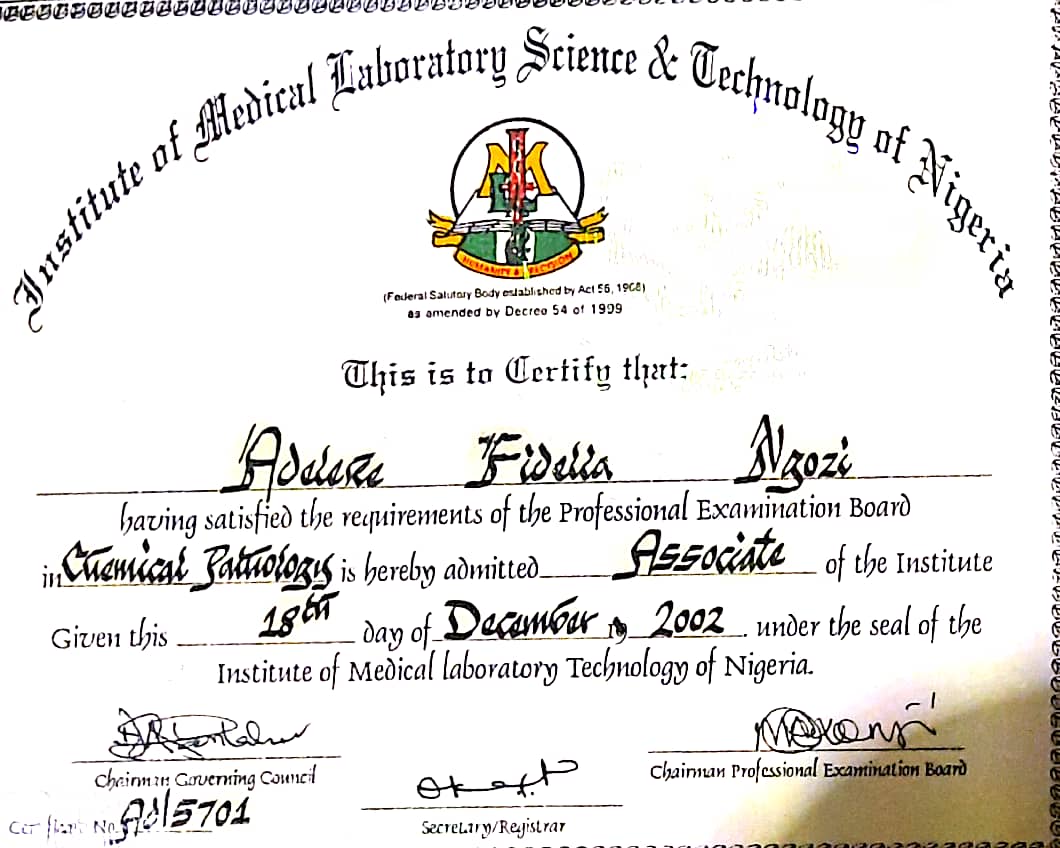 Institute of Medical Laboratory Science & Technology of Nigeria
HUMANITY & PRECISION
(Federal Salutory Body established by Act 56, 1968)
as amended by Decree 54 of 1999
This is to Certify that:
Adeleke Fidelia Ngozi
having satisfied the requirements of the Professional Examination Board
in Chemical Pathology is hereby admitted Associate of the Institute
Given this 18th day of December 2002 under the seal of the
Institute of Medical laboratory Technology of Nigeria.
Chairman Governing Council
Chairman Professional Examination Board
No. 5701
Secretary/Registrar